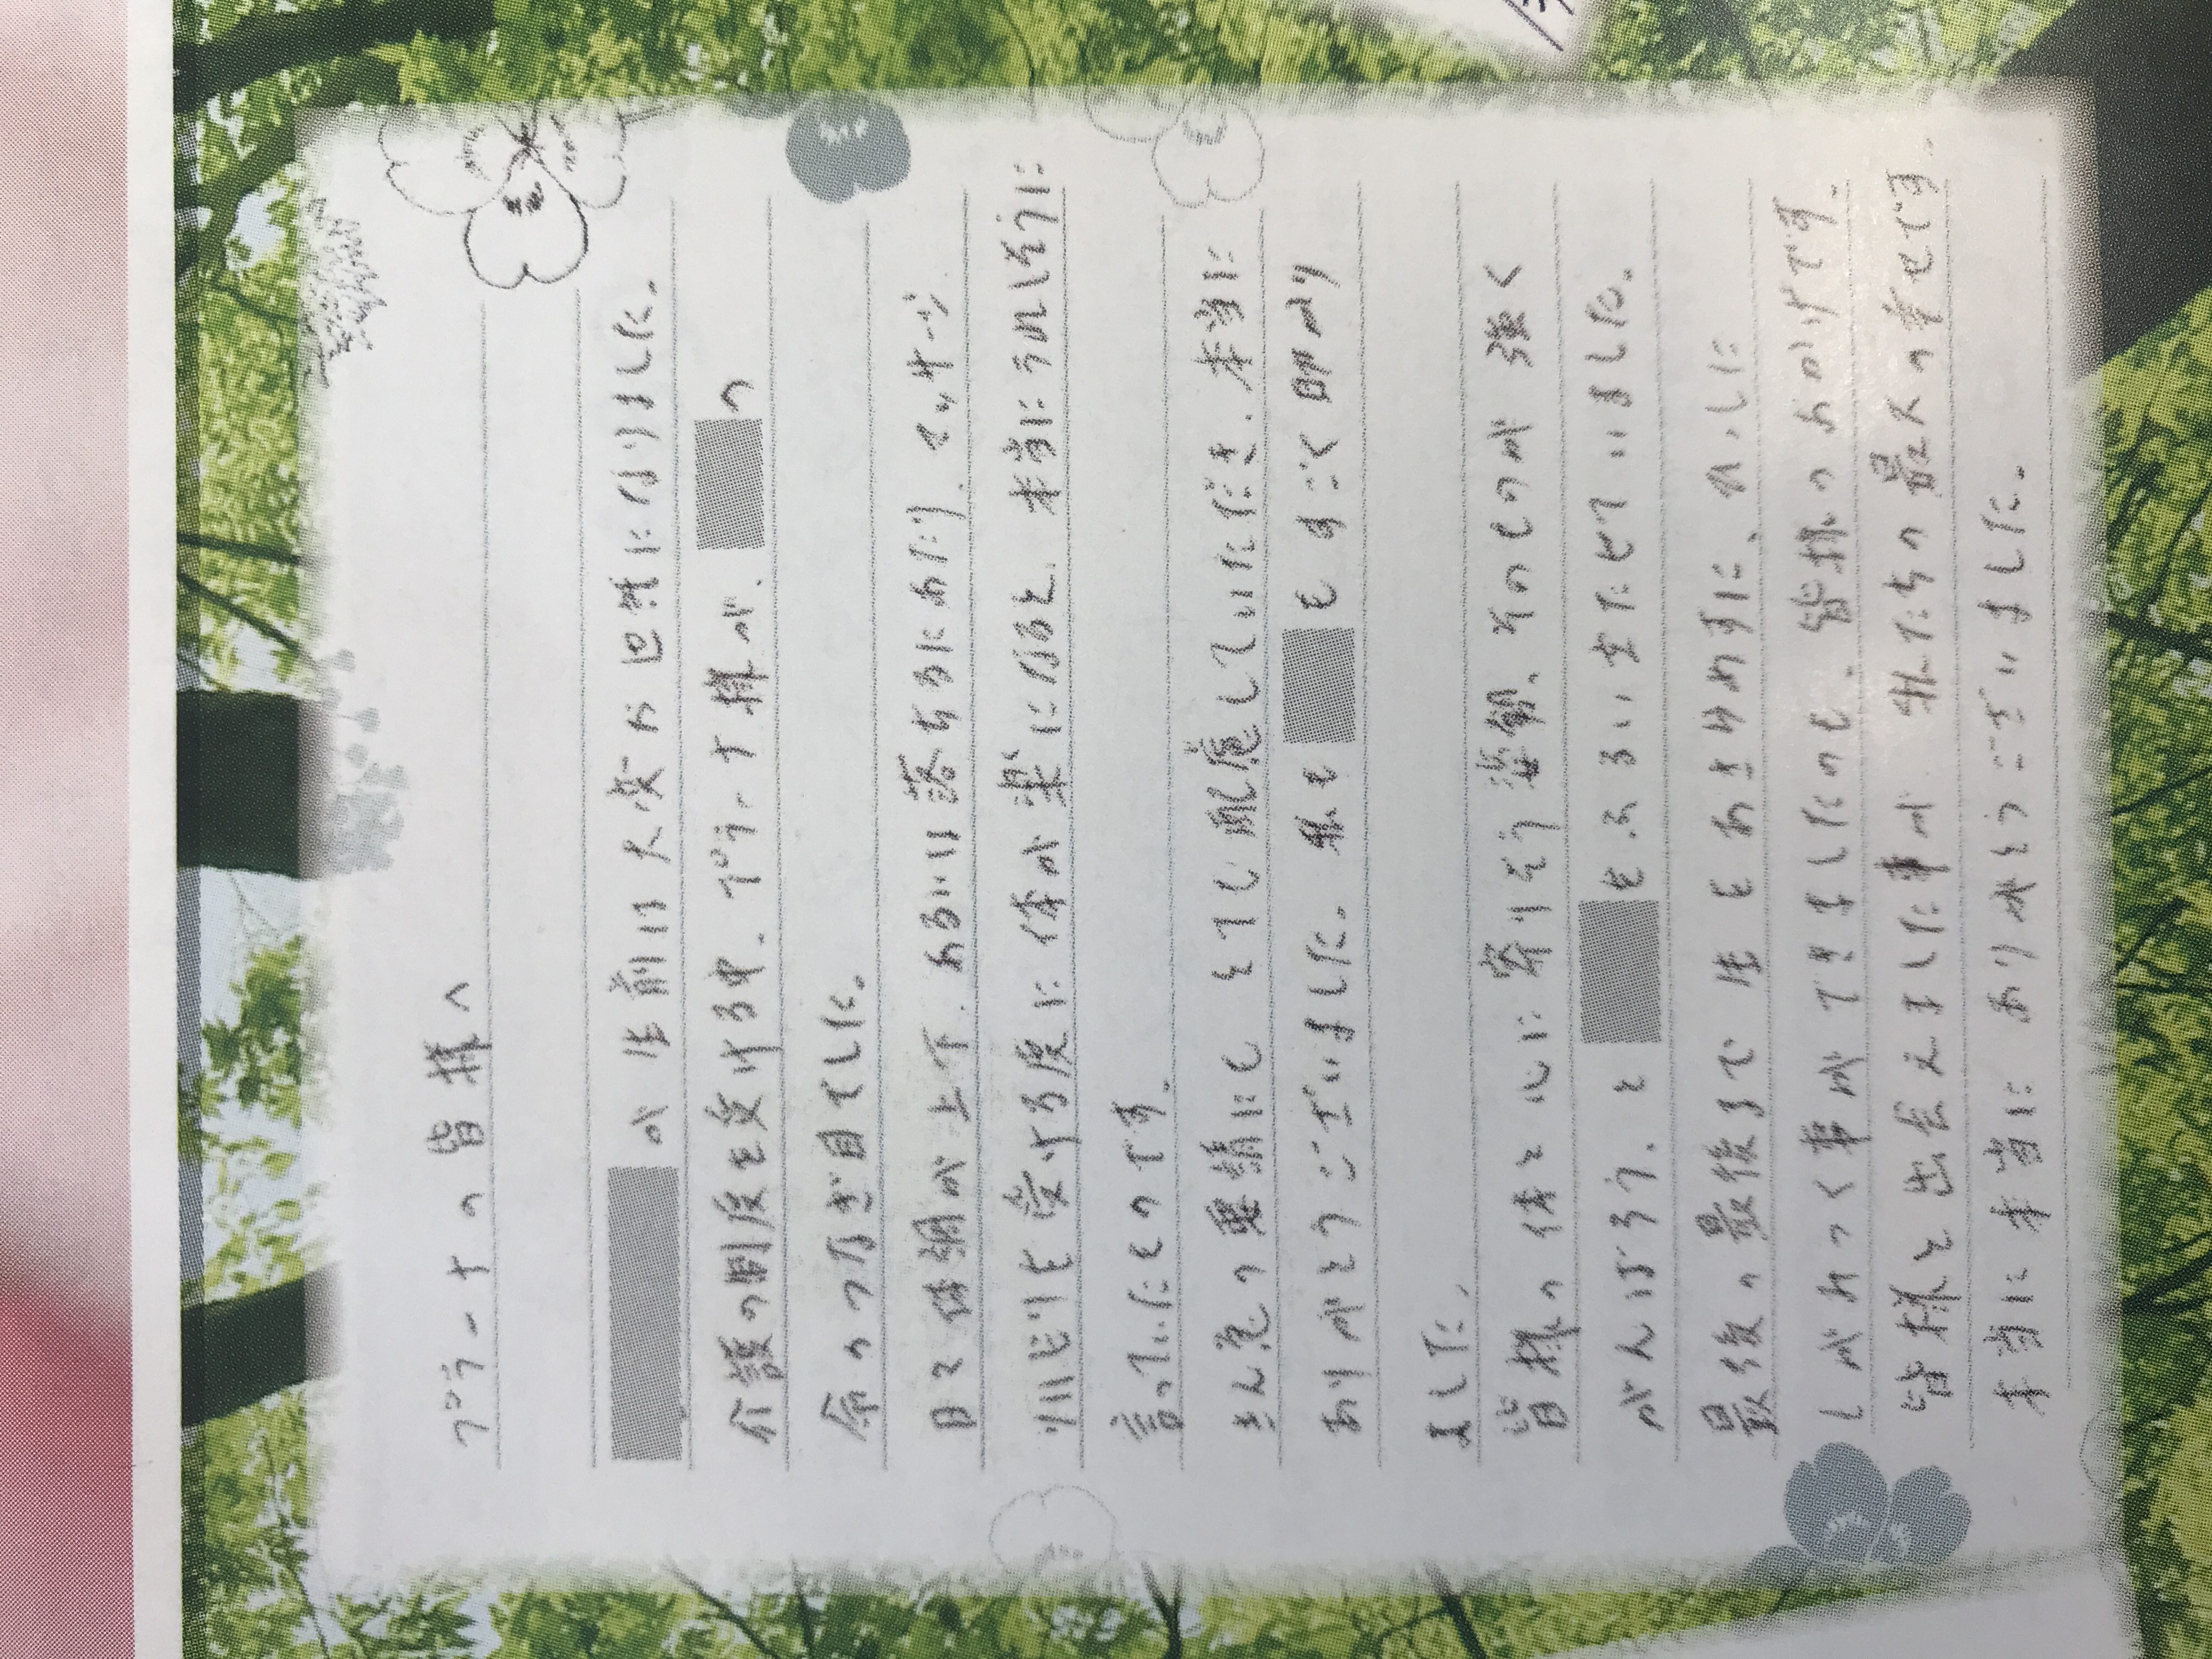 プラーナの皆様へ
が 生前は 大変お世話になりました。
介護の制度を受ける中、プラーナ様が、 の
命のつなぎ目でした。
日々体調が上下、あるいは落ちるにあたり、マッサージ
リハビリを受ける度に 体が楽になると、本当にうれしそうに
言っていたものです。
きん急の要請にも とても配慮していただき、本当に
ありがとうございました。 私も もすごく助かり
ました。
皆様の 体と心に 寄りそう姿勢、そのものが 強く
がんばろう、と をふるい立たせていました。
最後の最後まで 生をあきらめずに、
しがみつく事ができましたのも、皆様のおかげです。
皆様と出会えました事が 私たちの最大の幸せです。
本当に本当に ありがとうございました。